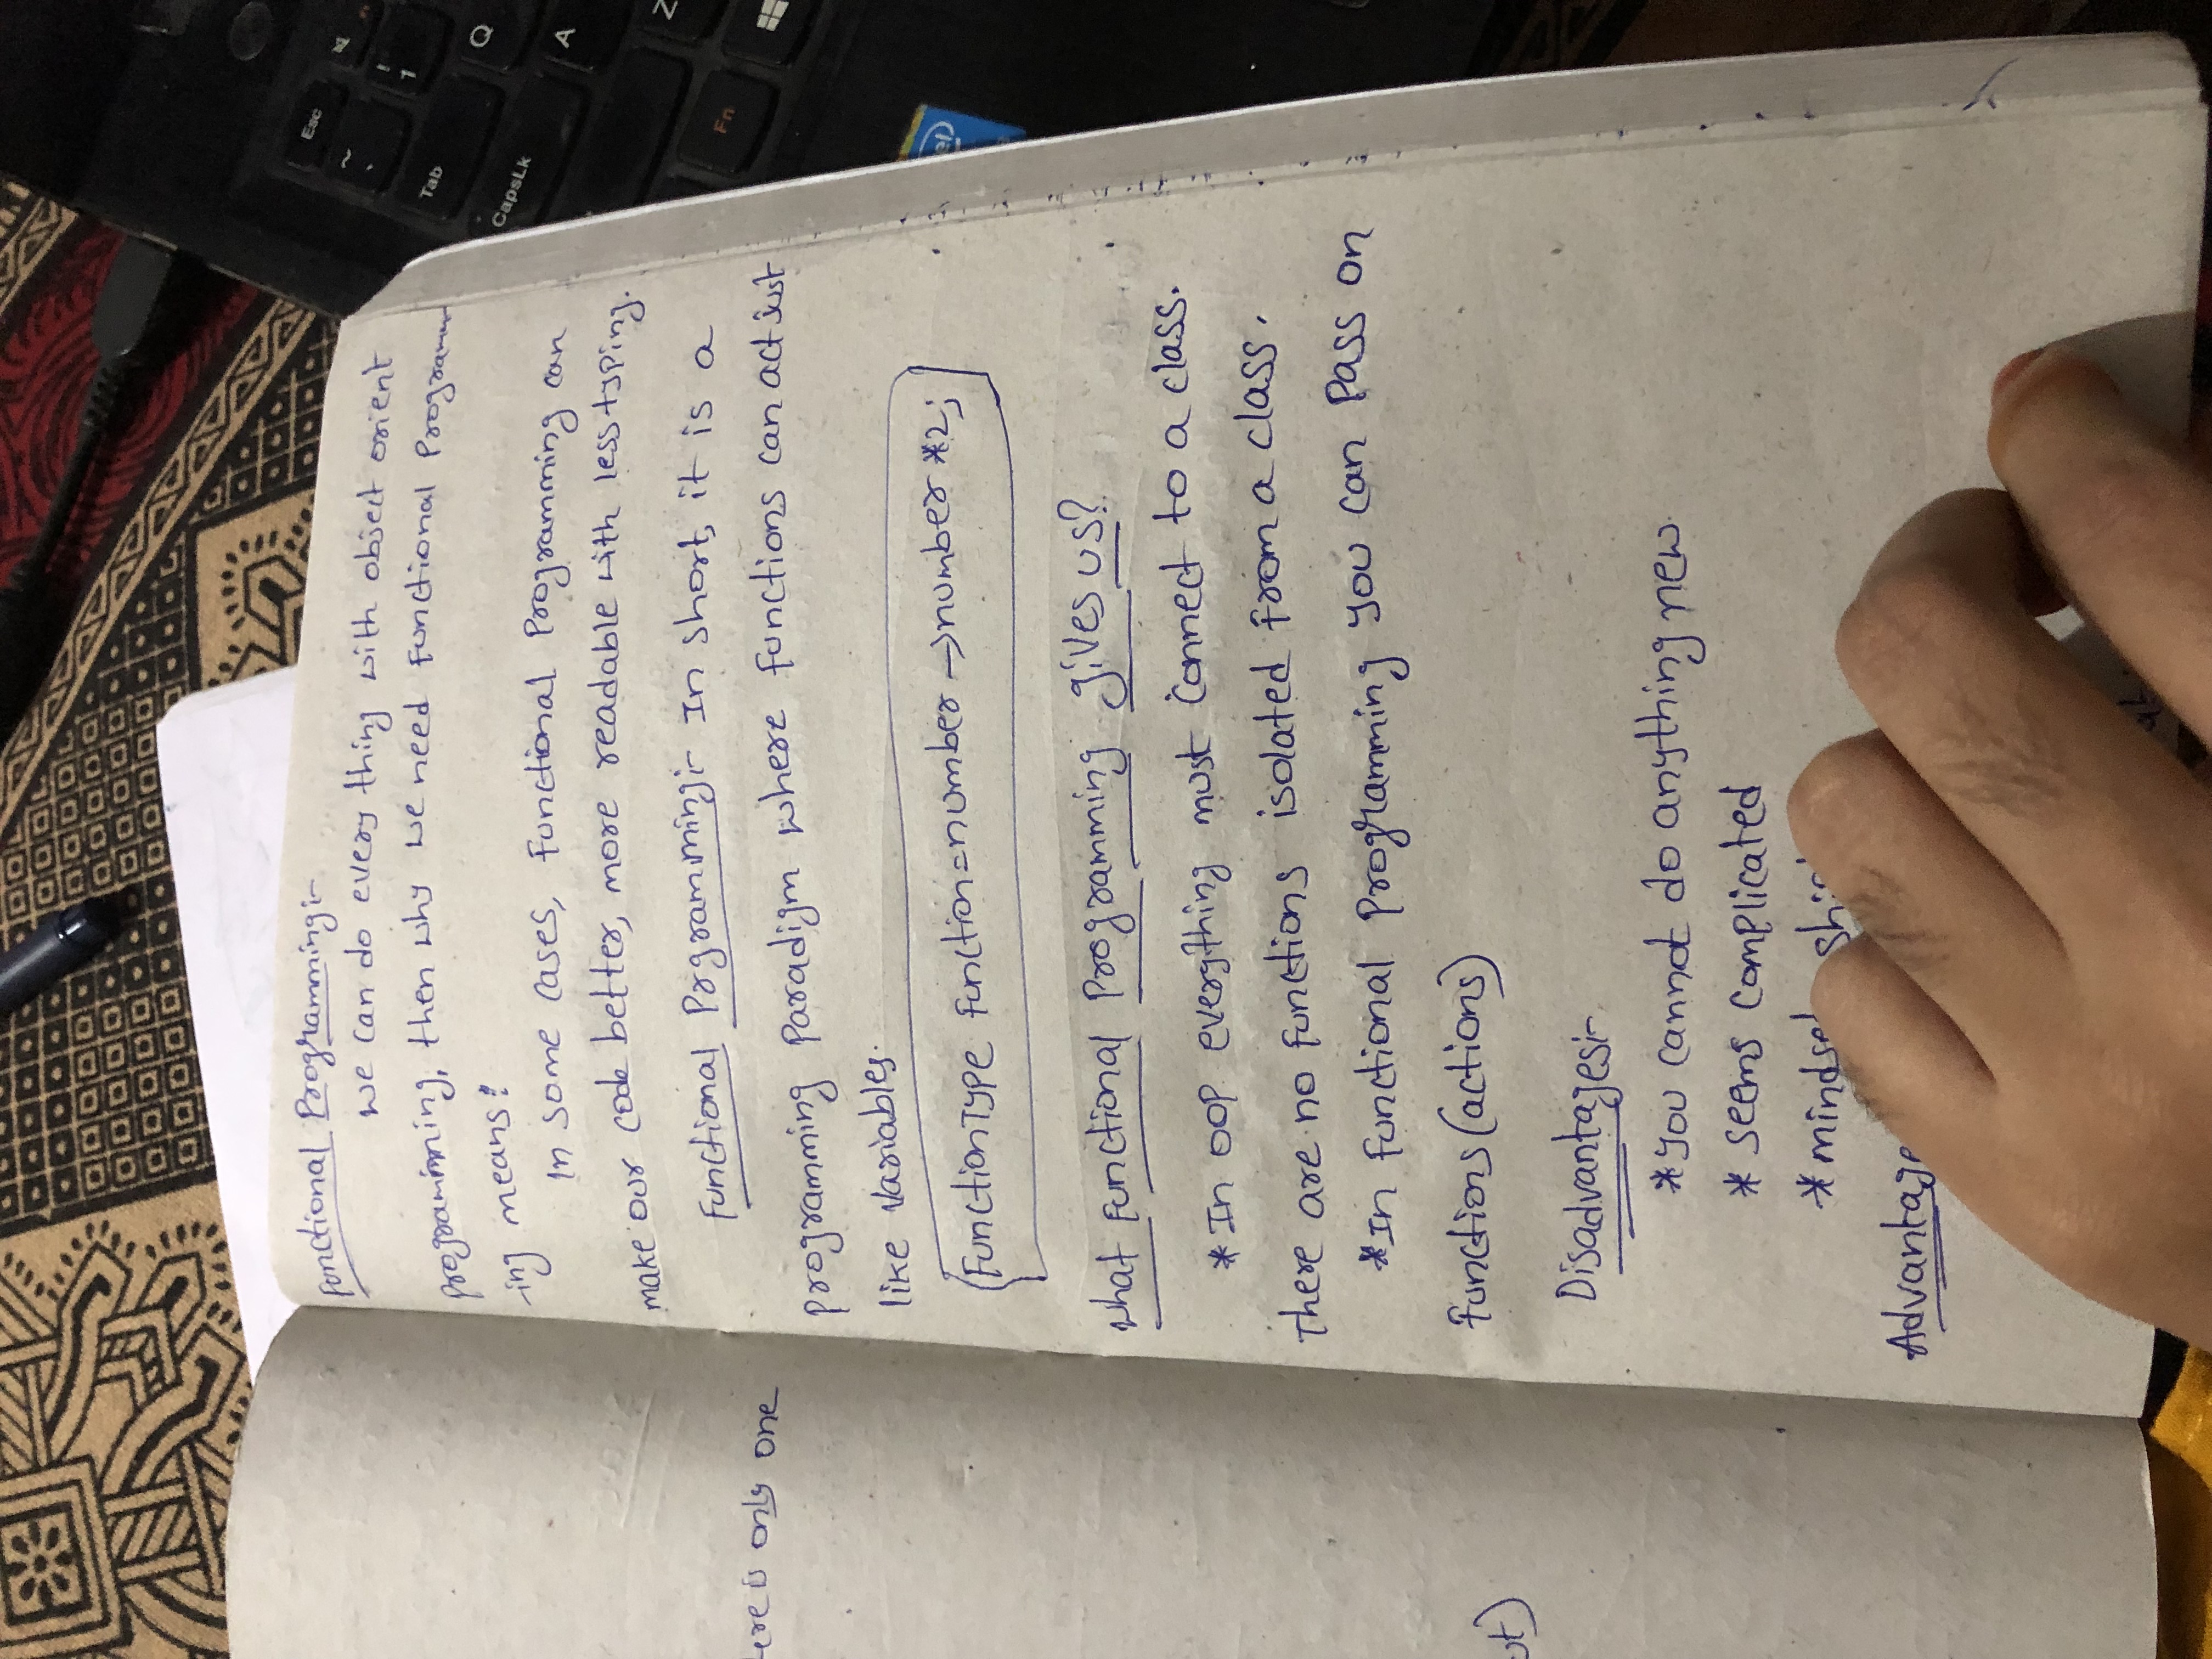 Functional Programming:-
we can do every thing with object orient
programming, then why we need Functional Programm
-ing means?
In some cases, functional Programming can
make our code better, more readable with less typing.
Functional Prgramming:- In short, it is a
programming Paradigm where functions can act just
like variables.
FunctionType function=number->number *2;
What Functional Programming gives us?
*In OOP everything must connect to a class.
There are no functions isolated from a class.
*In functional Programming you can pass on
functions (actions)
Disadvantages:-
*you cannot do anything new.
* seems complicated
*
is only one
Esc
~
!
1
Tab
Q
CapsLk
A
Z
Fn